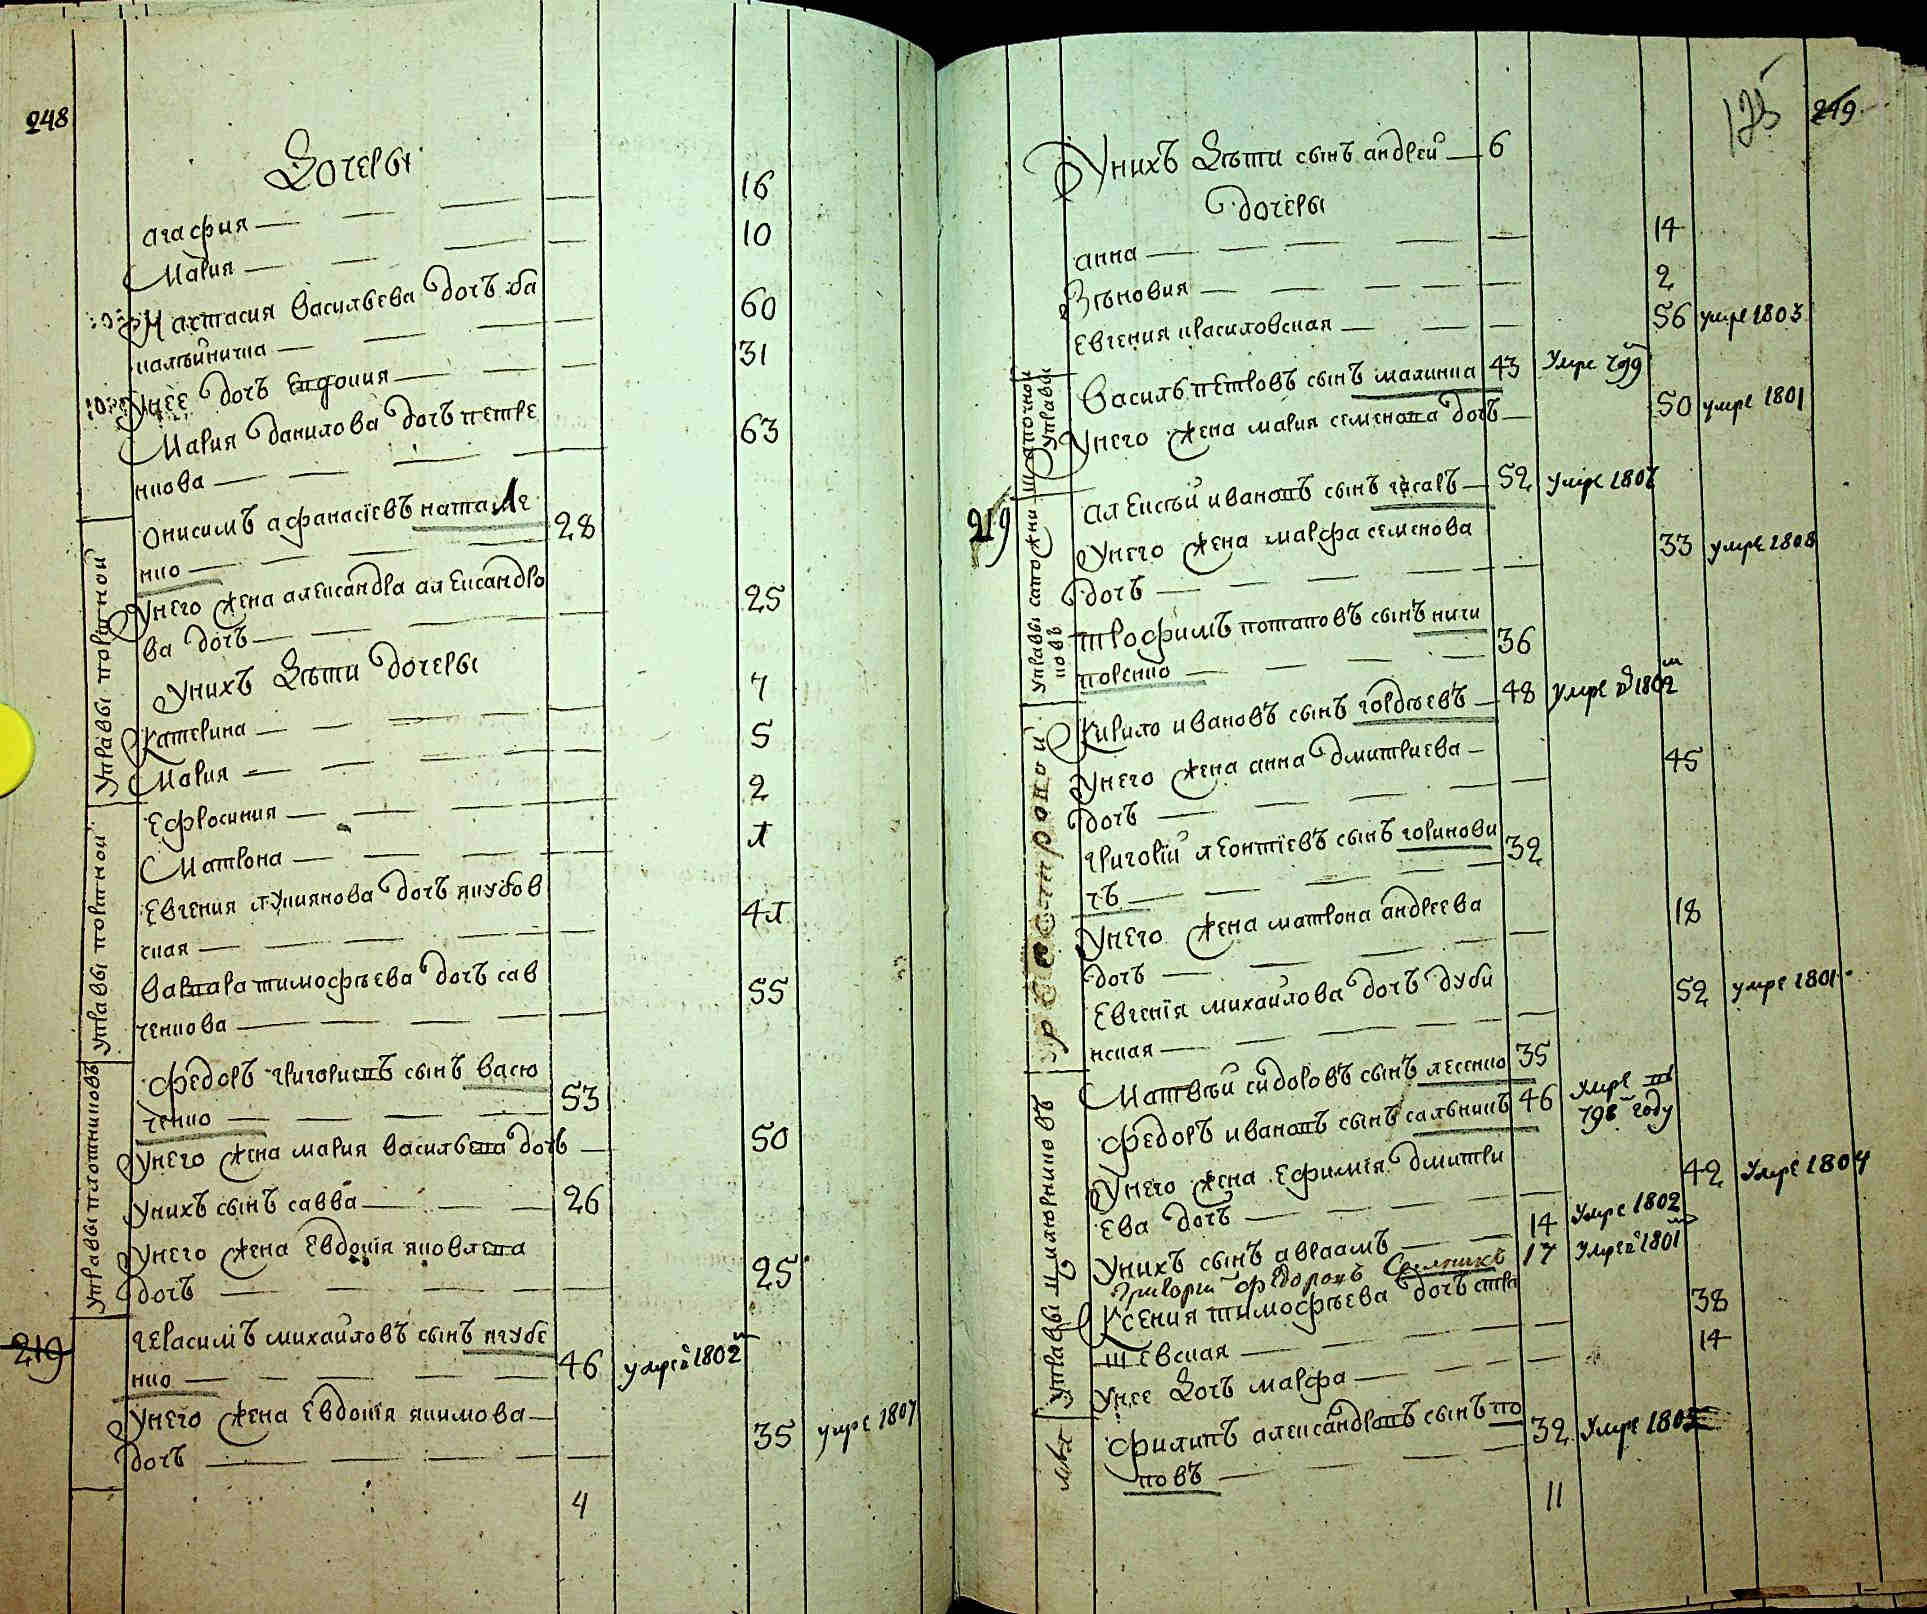 248
Дочеры
агафия 16
Мария 10
Настасия васильева дочъ ба
калѣйнична 60
Унее дочъ Евдокия 31
Мария данилова дочъ петре
нкова 63
онисимъ афанасіевъ натале
нко 28
Унего жена александра александро
ва дочъ 25
Унихъ Дѣти дочеры
Катерина 7
Мария 5
Ефросиния 2
Матрона
Евгения лукиянова дочъ якубов
ская
варвара тимофѣева дочъ сав
ченкова 55
федоръ григориевъ сынъ васю
ченко 53
Унего жена мария васильева дочъ 50
Унихъ сынъ савва 26
Унего жена Евдокія яковлева
дочъ 25
219 герасимъ михайловъ сынъ ягубе
нко 46 умре 1802
Унего жена Евдокія якимова
дочъ 35 умре 1807
4
управы портной
управы портной
управы плотниковъ
125 249
Унихъ Дѣти сынъ андрей 6
дочеры
анна 14
Зѣновия 2
Евгения красиловская 56 умре 1803
Василь петровъ сынъ малинка 43 Умре 799
Унего жена мария семенова дочъ 50 умре 1801
219 алексѣй ивановъ сынъ 52 умре
Унего жена марфа семенова
дочъ 33 умре 1808
трофимъ потаповъ сынъ ничи
поренко 36
Кирило ивановъ сынъ гордѣевъ 48 умре 1802
Унего жена анна дмитриева
дочъ 45
григорій леонтіевъ сынъ горинови
чъ 32
Унего жена матрона андреева
дочъ 18
Евгенія михайлова дочъ дуби
нская 52 умре 1801
Матвѣй сидоровъ сынъ лесенко 35
федоръ ивановъ сынъ сальникъ 46 умре въ
798 году
Унего жена Ефимія дмитри
ева дочъ 42 Умре 1804
Унихъ сынъ авраамъ 14 Умре 1802
Григорий федоровъ Салникъ 17 Умре 1801
Ксения тимофѣева дочъ
шевская 38
Унее Дочъ марфа 14
филипъ александровъ сынъ по
повъ 32 Умре
11
шапочной
управы
управы сапожни
ковъ